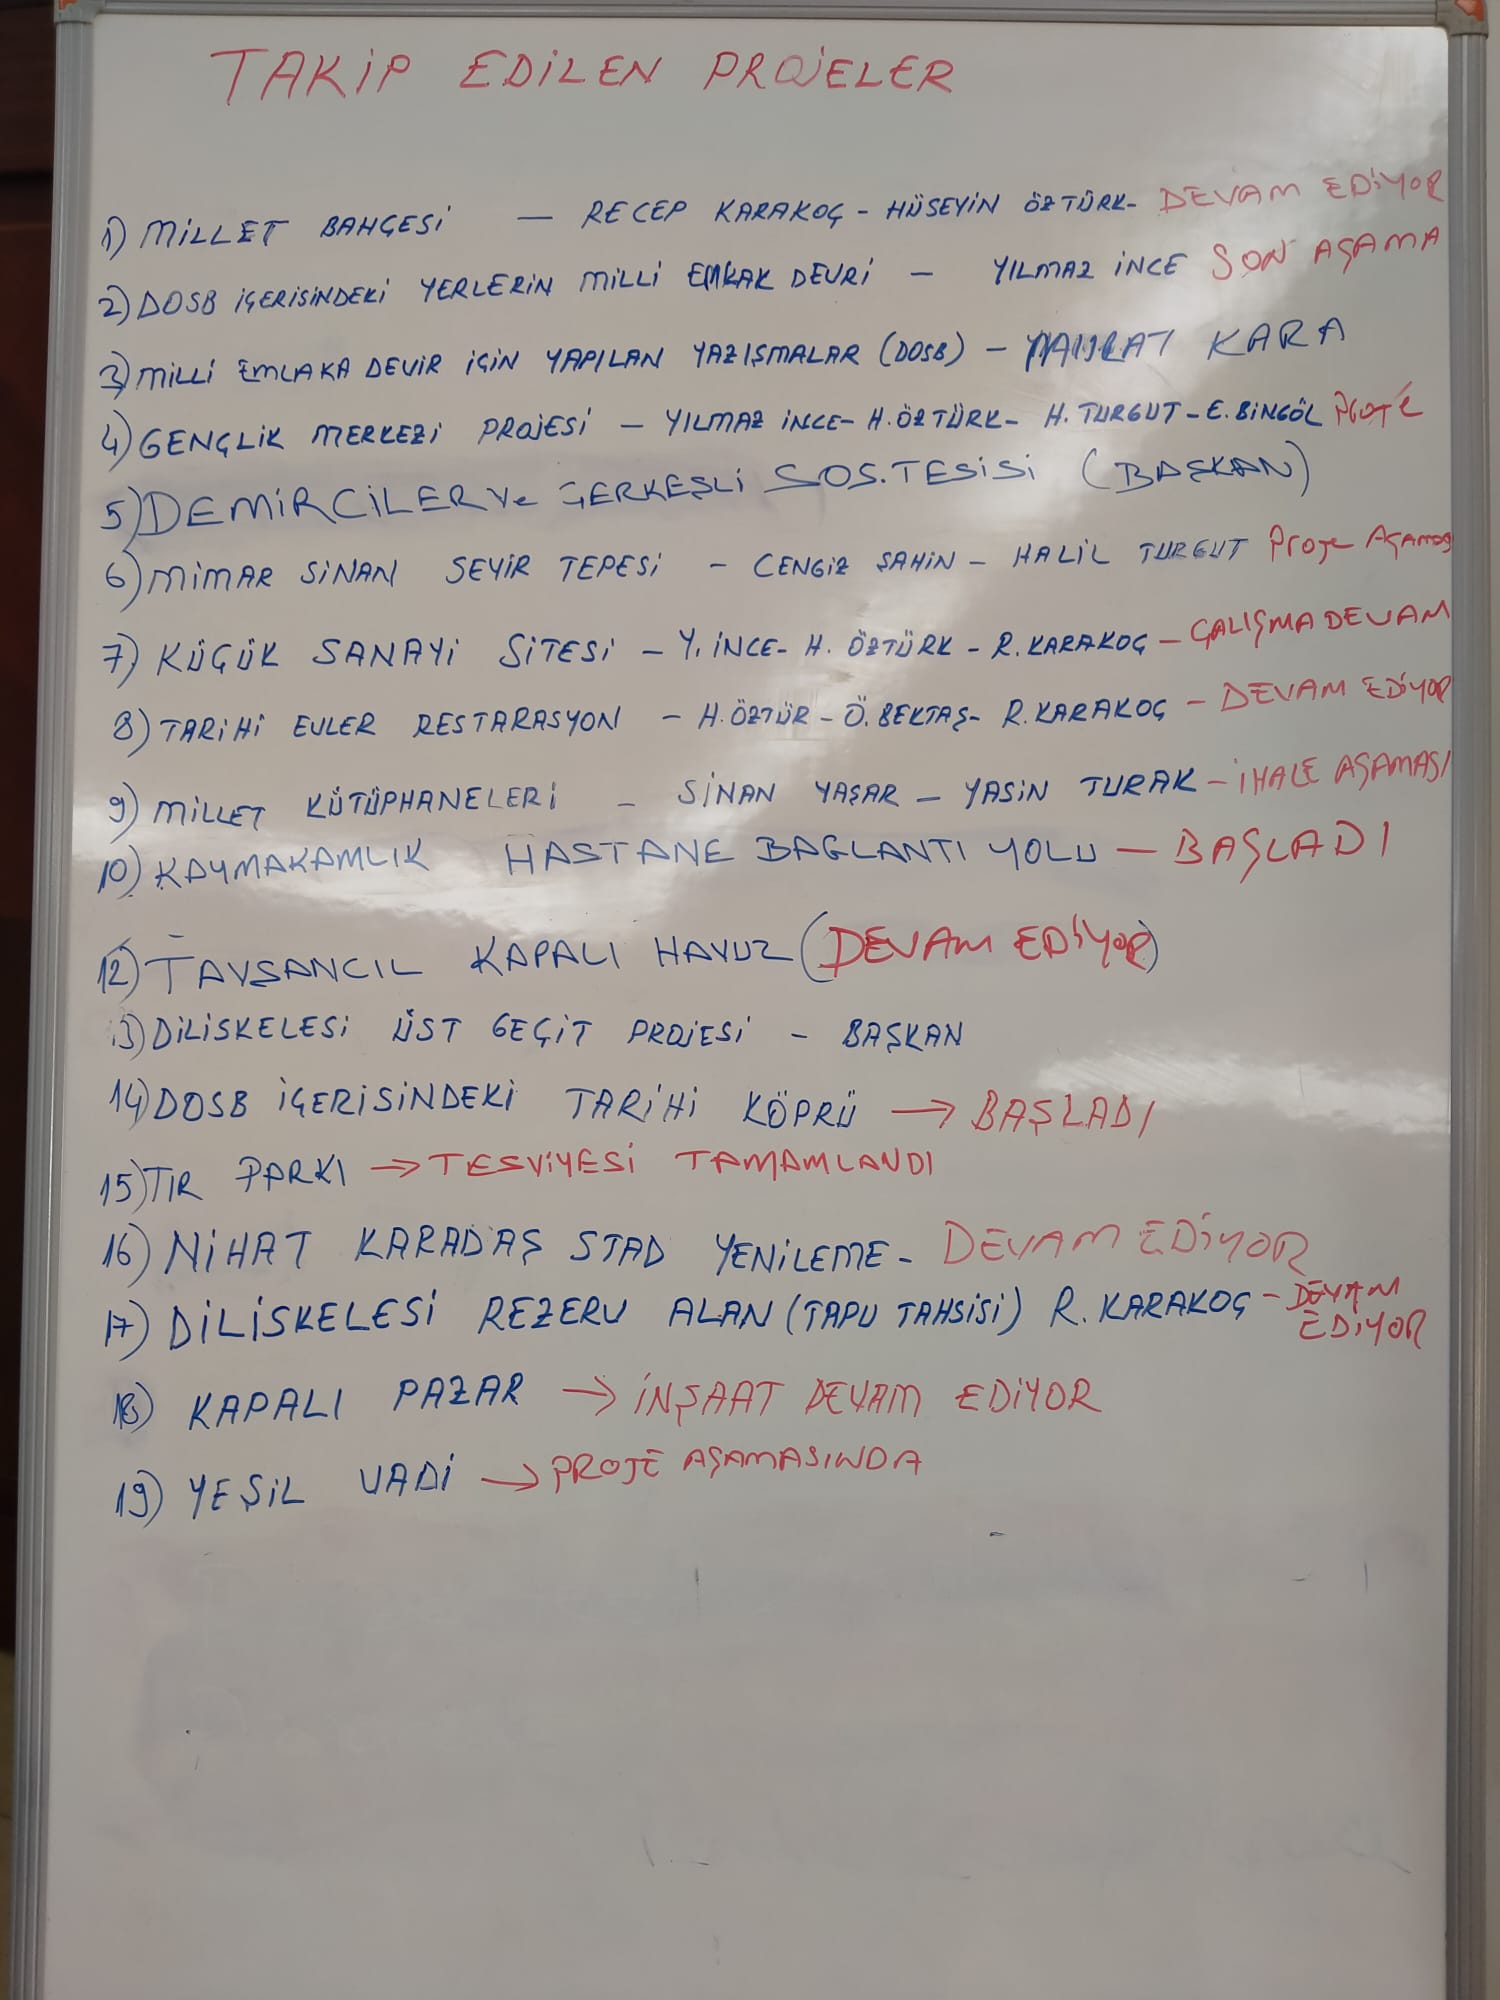 TAKİP EDİLEN PROJELER
1) MİLLET BAHÇESİ — RECEP KARAKOÇ - HÜSEYİN ÖZTÜRK - DEVAM EDİYOR
2) DOSB İÇERİSİNDEKİ YERLERİN MİLLİ EMLAK DEVRİ — YILMAZ İNCE SON AŞAMA
3) MİLLİ EMLAKA DEVİR İÇİN YAPILAN YAZIŞMALAR (DOSB) — KARA
4) GENÇLİK MERKEZİ PROJESİ — YILMAZ İNCE - H. ÖZTÜRK - H. TURGUT - E. BİNGÖL Proje
5) DEMİRCİLER Ve ÇERKEŞLİ SOS. TESİSİ (BAŞKAN)
6) MİMAR SİNAN SEYİR TEPESİ - CENGİZ ŞAHİN - HALİL TURGUT Proje Aşaması
7) KÜÇÜK SANAYİ SİTESİ - Y. İNCE - H. ÖZTÜRK - R. KARAKOÇ - ÇALIŞMA DEVAM
8) TARİHİ EVLER RESTARASYON - H. ÖZTÜR - Ö. BEKTAŞ - R. KARAKOÇ - DEVAM EDİYOR
9) MİLLET KÜTÜPHANELERİ - SİNAN YAŞAR - YASİN TURAK - İHALE AŞAMASI
10) KAYMAKAMLIK HASTANE BAGLANTI YOLU — BAŞLADI
12) TAVŞANCIL KAPALI HAVUZ (DEVAM EDİYOR)
13) DİLİSKELESİ ÜST GEÇİT PROJESİ - BAŞKAN
14) DOSB İÇERİSİNDEKİ TARİHİ KÖPRÜ → BAŞLADI
15) TIR PARKI → TESVİYESİ TAMAMLANDI
16) NİHAT KARADAŞ STAD YENİLEME - DEVAM EDİYOR
17) DİLİSKELESİ REZERV ALAN (TAPU TAHSİSİ) R. KARAKOÇ - DEVAM
EDİYOR
18) KAPALI PAZAR → İNŞAAT DEVAM EDİYOR
19) YEŞİL VADİ → PROJE AŞAMASINDA